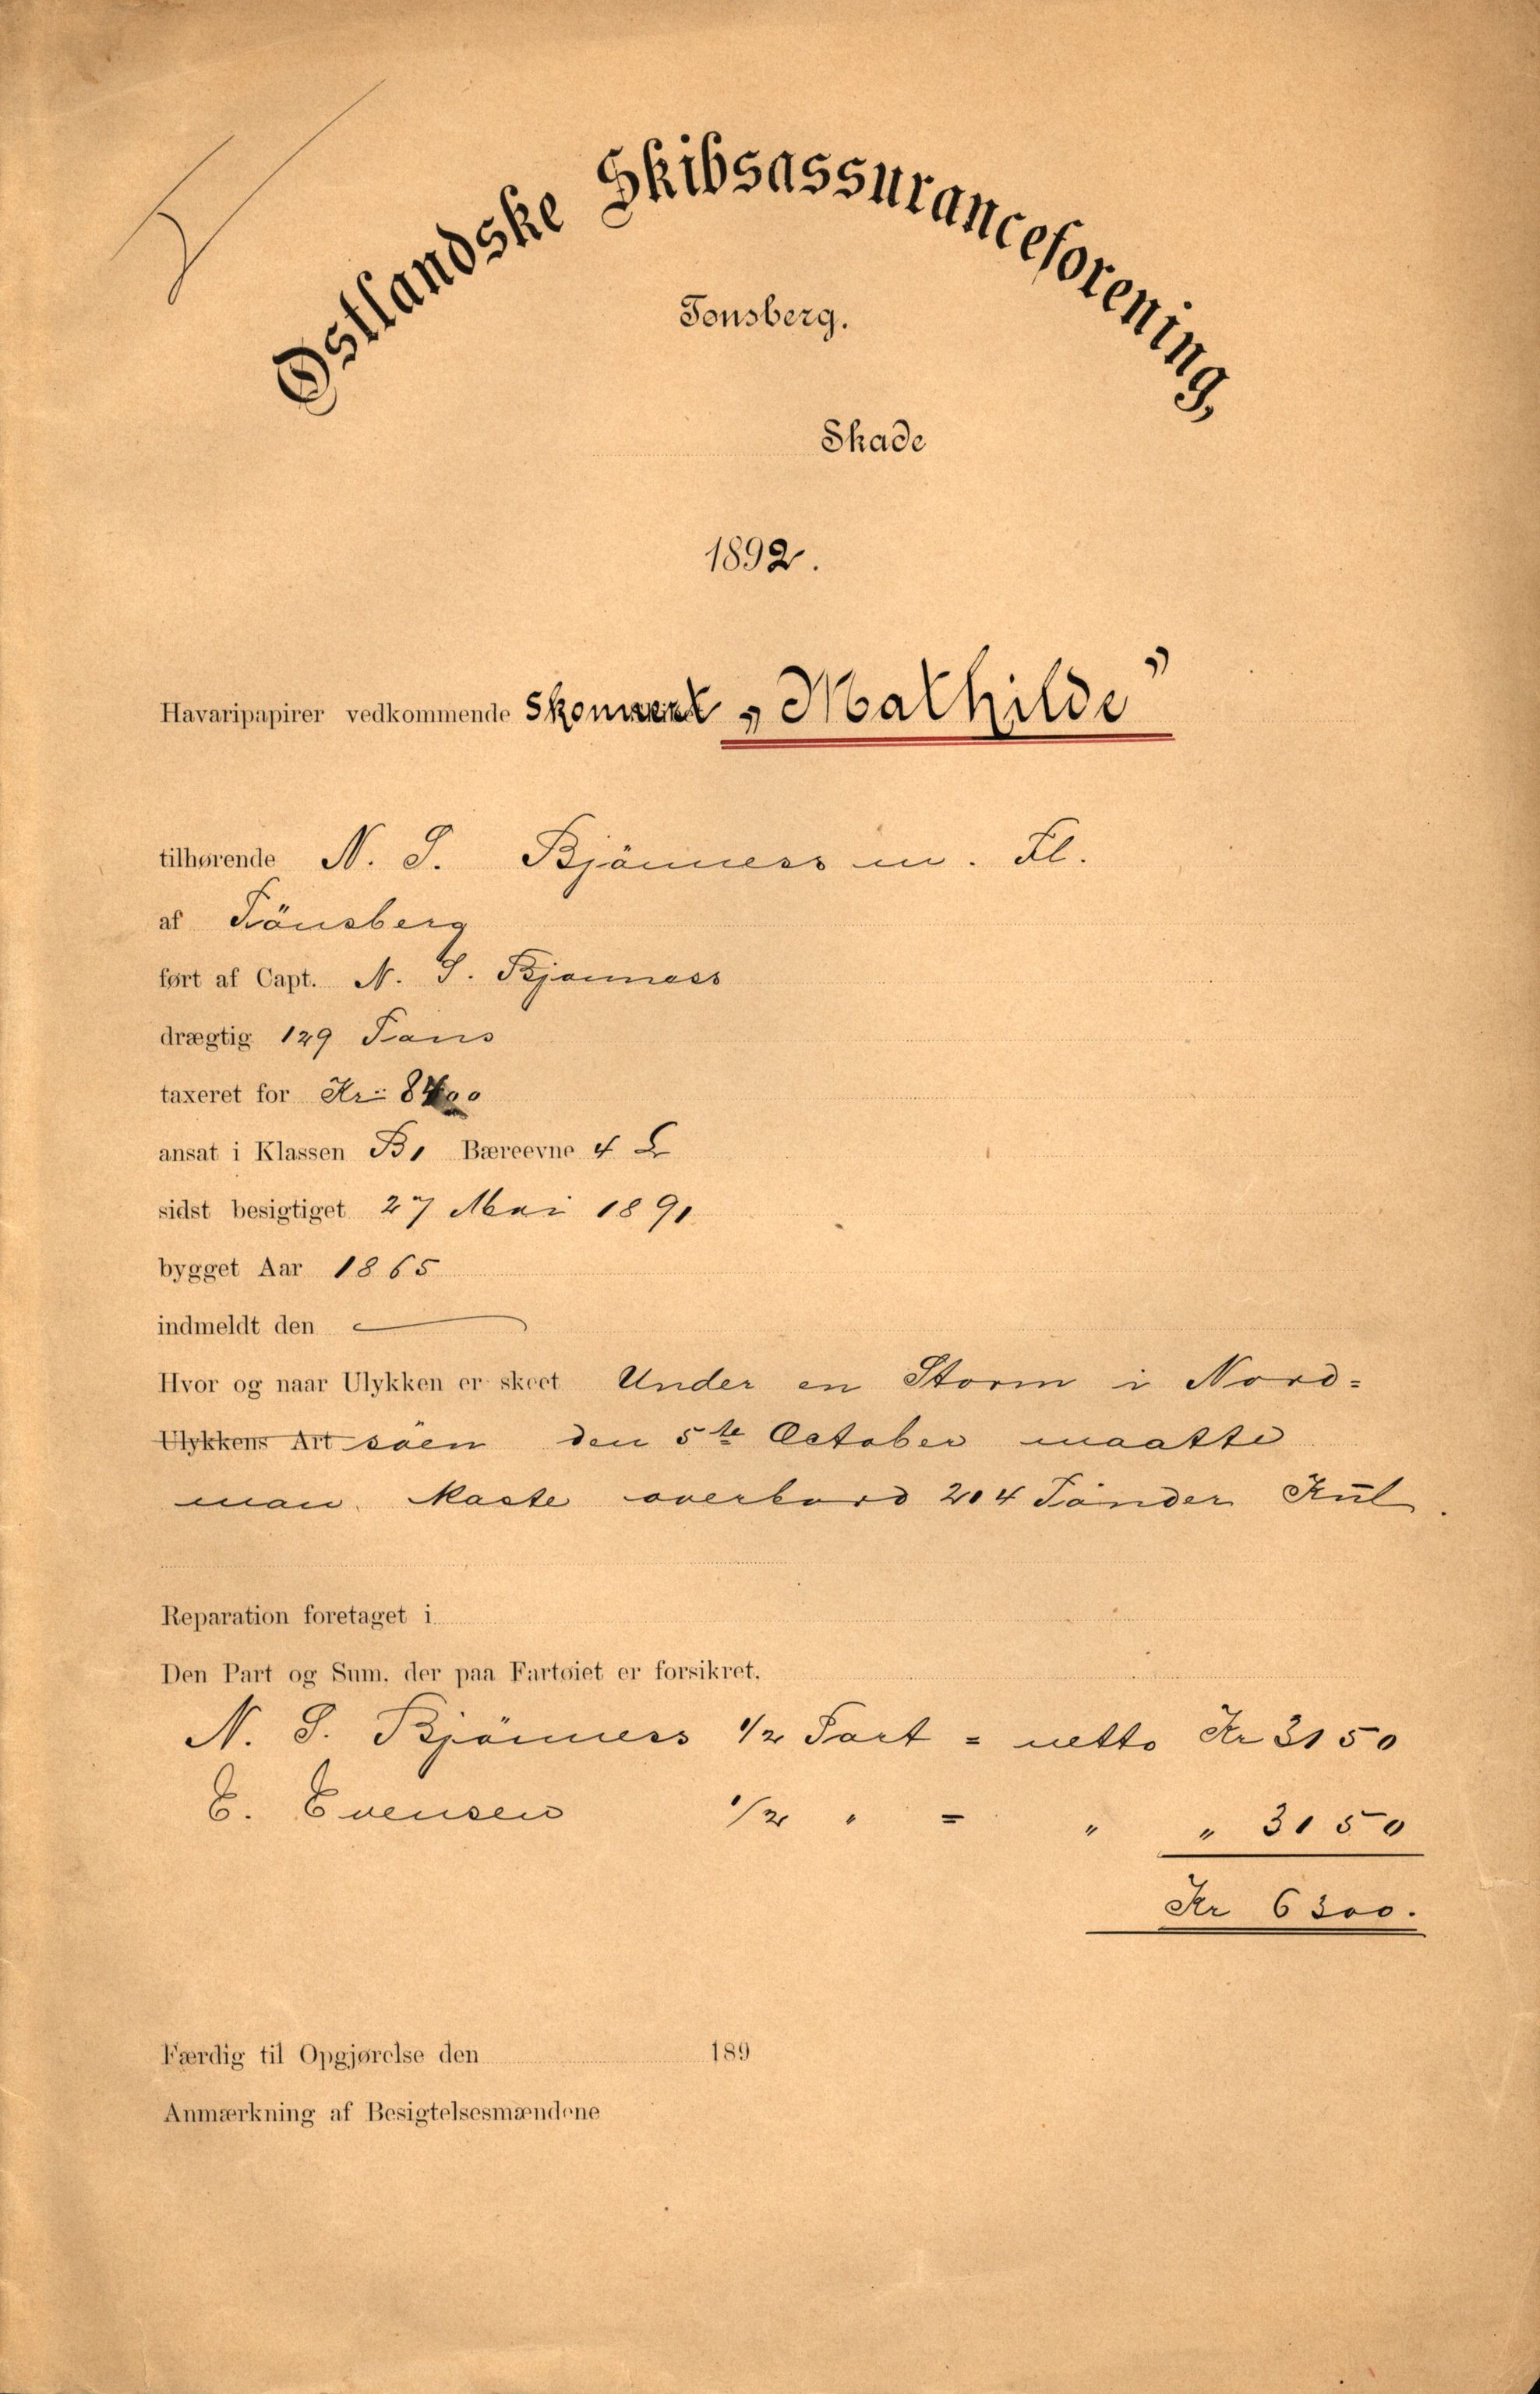 Østlandske Skibsassuranceforening,
Tonsberg.
Skade
1892.
Havaripapirer vedkommende Skonnert „Mathilde”
tilhørende N. S. Bjönness m. Fl.
af Tönsberg
ført af Capt. N. S. Bjonness
drægtig 129 Tons
taxeret for Kr: 8400
ansat i Klassen B1 Bæreevne 4 L
sidst besigtiget 27 Mai 1891
bygget Aar 1865
indmeldt den
Hvor og naar Ulykken er skeet Under en Storm i Nord=
Ulykkens Art söen den 5te October maatte
man kaste overbord 204 Tönder Kul.
Reparation foretaget i
Den Part og Sum, der paa Fartøiet er forsikret,
N. S. Bjönness 1/2 Part = netto Kr 3150
E. Evensen 1/2 " = " " 3150
Kr 6300.
Færdig til Opgjørelse den 189
Anmærkning af Besigtelsesmændene